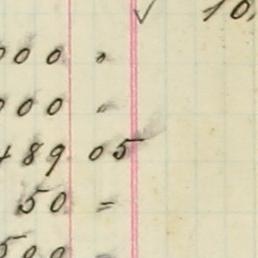 ✓ 10,
000 "
000 "
489 05
50 =
500